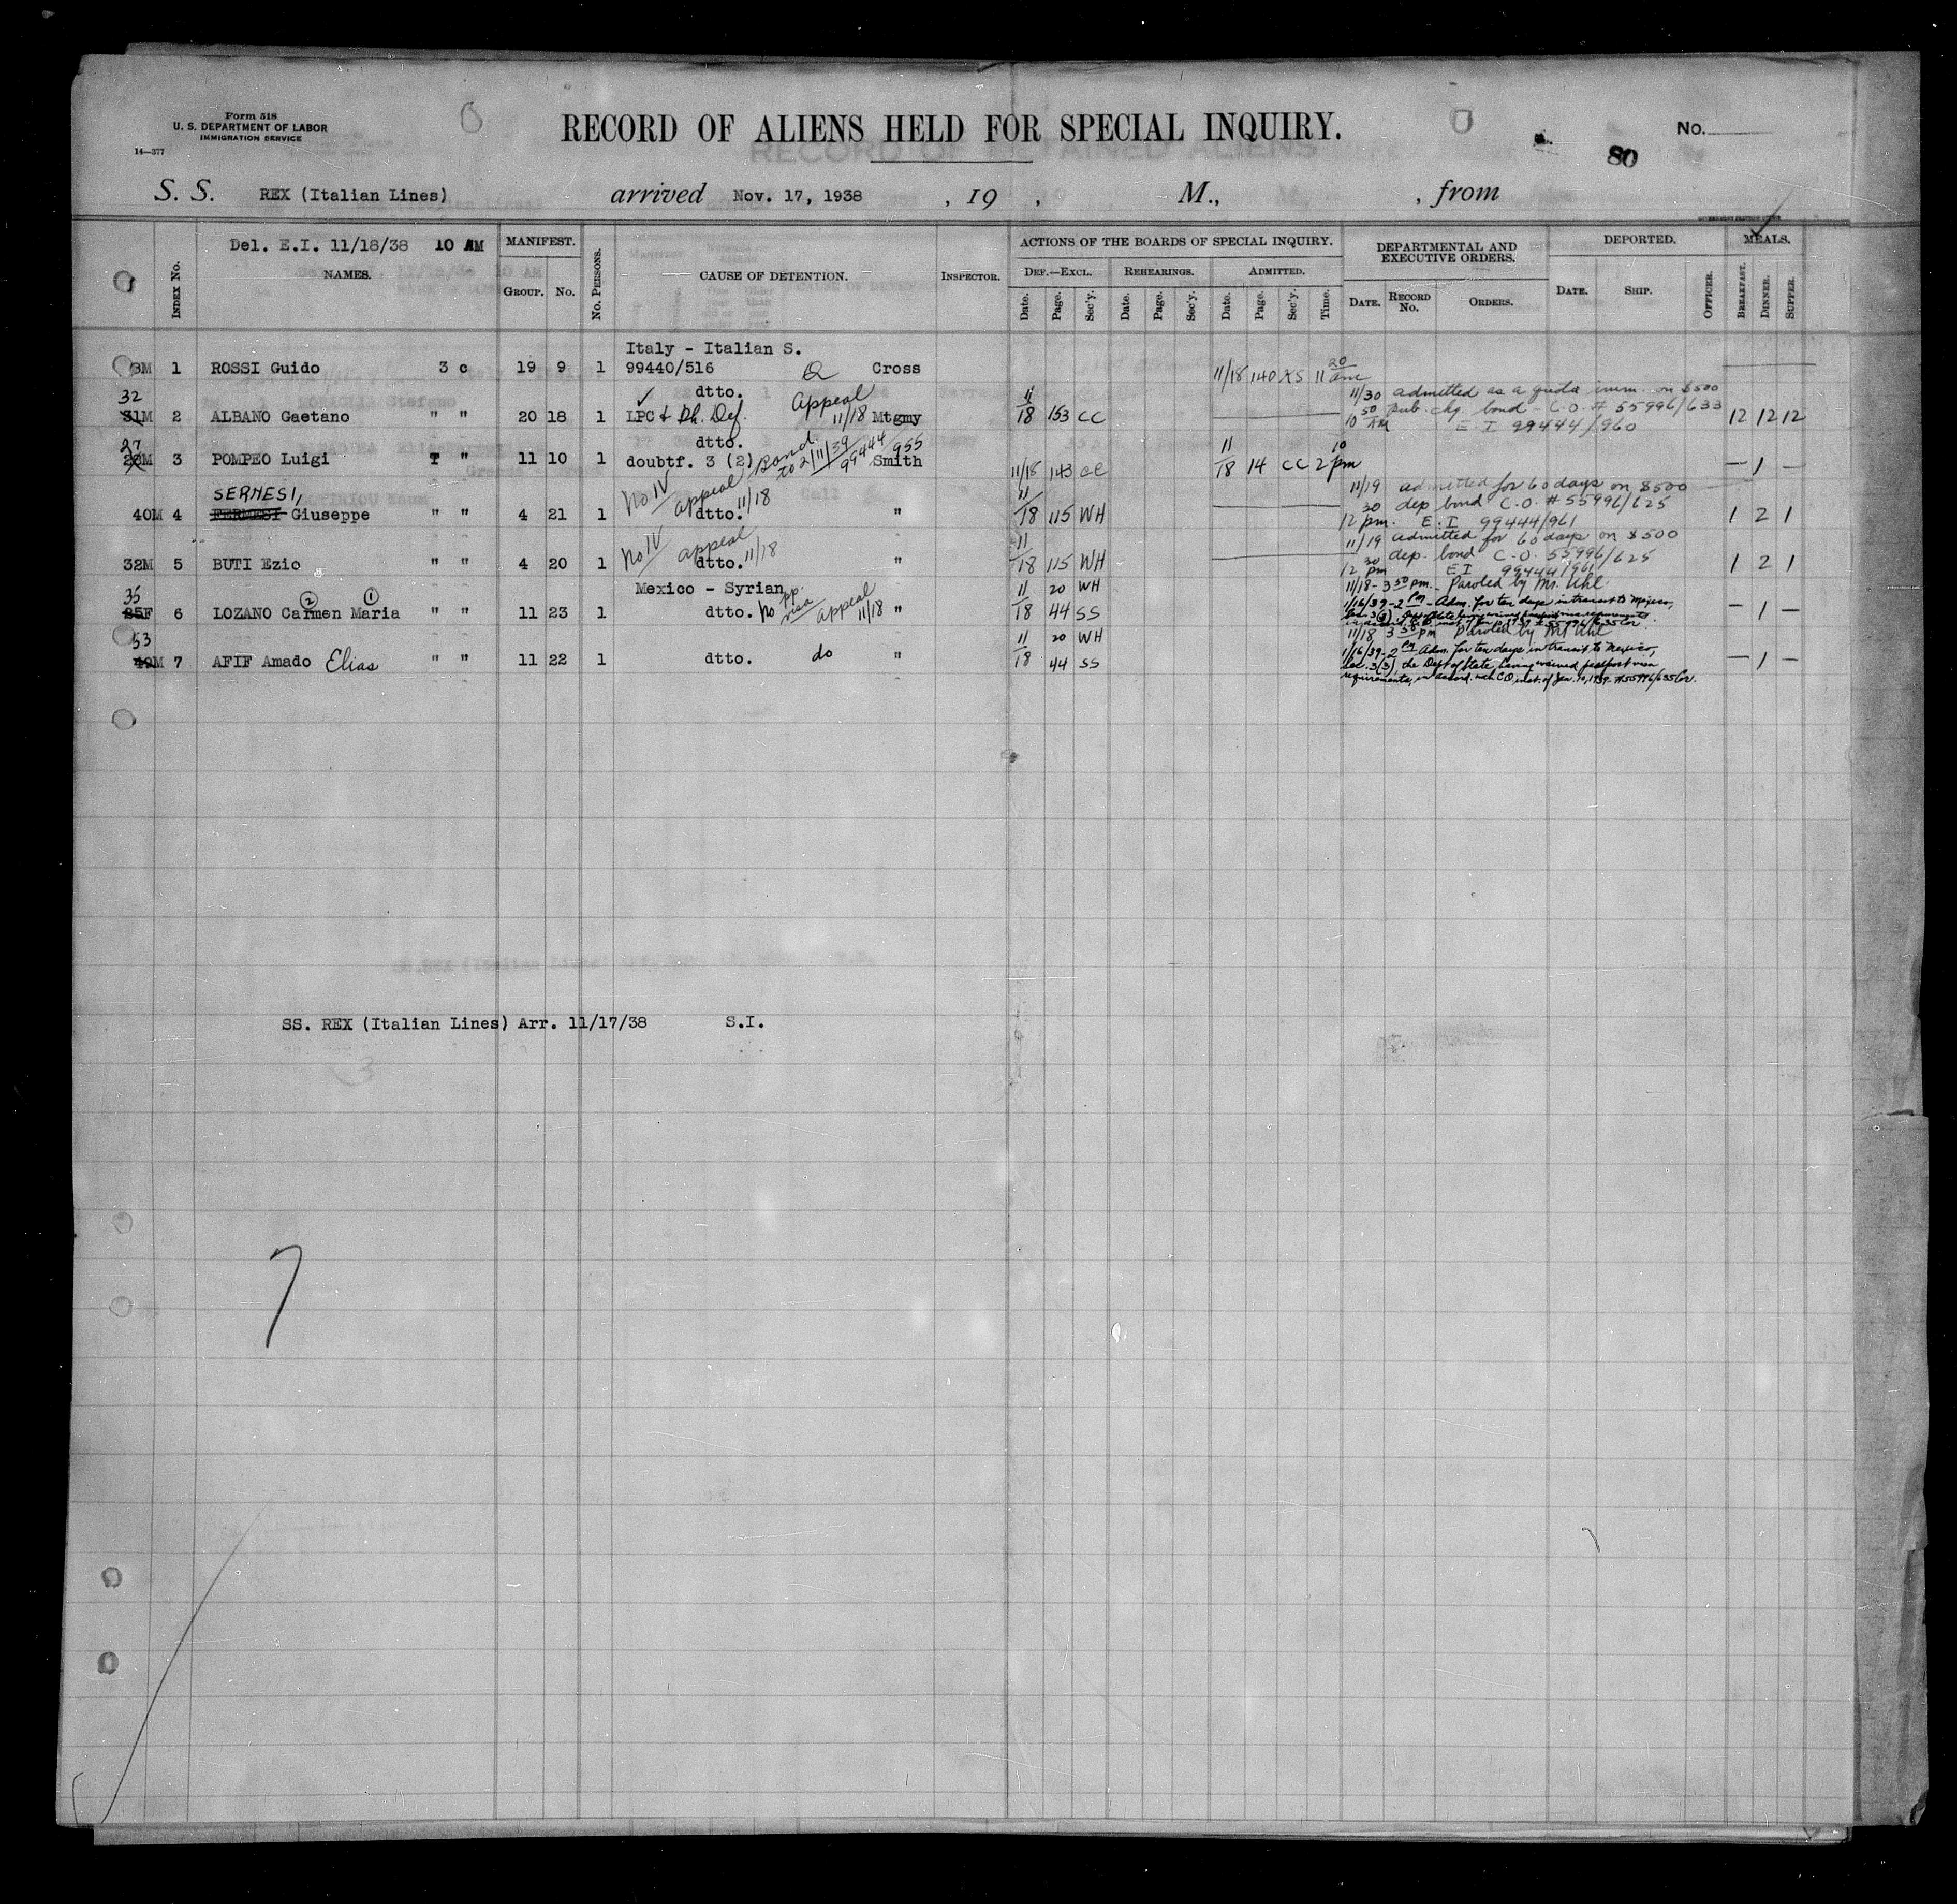 Form 518
U. S. DEPARTMENT OF LABOR
IMMIGRATION SERVICE
14—377
RECORD OF ALIENS HELD FOR SPECIAL INQUIRY.
No.
80
S. S. REX (Italian Lines) arrived Nov. 17, 1938 , 19 , M., , from
Del. E.I. 11/18/38 10 AM
INDEX No. NAMES. MANIFEST. GROUP. No. No. PERSONS. CAUSE OF DETENTION. INSPECTOR.
ACTIONS OF THE BOARDS OF SPECIAL INQUIRY.
DEF.—EXCL. REHEARINGS. ADMITTED.
Date. Page. Sec'y. Date. Page. Sec'y. Date. Page. Sec'y. Time.
DEPARTMENTAL AND EXECUTIVE ORDERS.
DATE. RECORD No. ORDERS.
DEPORTED.
DATE. SHIP. OFFICER.
MEALS.
BREAKFAST. DINNER. SUPPER.
Italy - Italian S.
M 1 ROSSI Guido 3 c 19 9 1 99440/516 Cross 11/18 140 KS 11 30 am
32
31M 2 ALBANO Gaetano " " 20 18 1 dtto. LPC & Ph. Def. Appeal 11/18 Mtgmy 11/18 153 CC
11/30 admitted as a quota imm. on $500
10 50 AM pub. chg. bond - C.O. # 55996/633
E I 99444/960 12 12 12
27
28M 3 POMPEO Luigi " " 11 10 1 dtto. doubtf. 3 (2) Bond to 2/11/39 99444 955 Smith 11/18 143 CC 11/18 14 CC 2 10 pm — 1 —
SERNESI,
40M 4 Giuseppe " " 4 21 1 No IV appeal 11/18 dtto. " 11/18 115 WH
11/19 admitted for 60 days on $500
12 30 pm. dep bond C.O. # 55996/625
E.I 99444/961 1 2 1
32M 5 BUTI Ezio " " 4 20 1 No IV appeal 11/18 dtto. " 11/18 115 WH
11/19 admitted for 60 days on $500
12 30 pm dep. bond C.O. 55996/625
E I 99444/961 1 2 1
Mexico - Syrian
35
F 6 LOZANO Carmen 2 Maria 1 " " 11 23 1 dtto. no pp. visa appeal 11/18 " 11/18 20 WH 44 SS
11/18 - 3 50 pm. - Paroled by Mr. Uhl.
1/16/39 - 2 PM - Adm. for ten days in transit to Mexico, — 1 —
53
49M 7 AFIF Amado Elias " " 11 22 1 dtto. do " 11/18 20 WH 44 SS
11/18 3 50 pm Paroled by Mr Uhl
1/16/39 - 2 PM Adm. for ten days in transit to Mexico,
Sec. 3(3), the Dept of State having waived passport visa
requirements, in accord. with CO inst. of Jan. 10, 1939 - #55996/635 Cor. — 1 —
SS. REX (Italian Lines) Arr. 11/17/38 S.I.
7